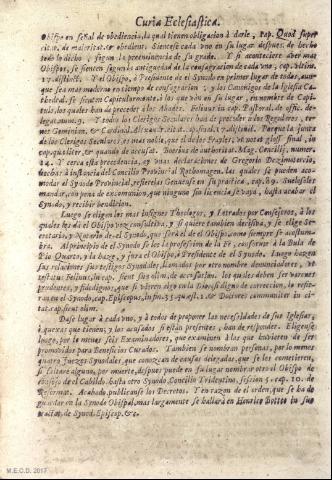 Curia Eclesiastica.
Obispo en señal de obediencia, la qual tienen obligacion à darle, cap. Quod super
his, de maiorit. & obedient. Sientese cada vno en su lugar despues de hecho
todo lo dicho, segun la preeminencia de su grado. Y si aconteciere aver mas
Obispos, se sienten segun la antiguedad de la consagracion de cada vno, cap. vltim.
17. distinct. Y el Obispo, ò Presidente de el Synodo en primer lugar de todos, aun-
que sea mas moderno en tiempo de consagracion; y los Canonigos de la Iglesia Ca-
thedral, si se sientan Capitularmente, à los que vno en su lugar, en nombre de Capi-
tulo, los quales han de preceder à los Abades. Felinus in cap. Pastoral. de offic. de-
legat. num. 9. Y todos los Clerigos Seculares han de preceder à los Regulares,
Geminian. & Cardinal. Alexandr. in cap. final. 17. distinct. Porque la junta
de los Clerigos Seculares, es mas noble, por el dicho Prafer, vt notat gloss. final, in
cap. qualiter, & quando de accusat. Doctor de autoritat. Mag. Concilij, numer.
14. Y cerca esta precedencia, ay vnas declaraciones de Gregorio Dezimotercio,
hechas à instancia del Concilio Provincial Rothomagen. las quales se pueden aco-
modar al Synodo Provincial, refierelas Genuense en su practica, cap. 89. Sueleseles
mandar, con pena de excomunion, que ninguno sin licencia se vaya, hasta acabar el
Synodo, y recibir bendicion.
Luego se eligen los mas insignes Theologos, y Letrados por Consejeros, à los
quales les dà el Obispo voz consultiva, y si quiere tambien decisiva, y se elige Se-
cretario, y Notario de el Synodo, que serà el que quisiere como siempre se acostum-
bra. Al principio de el Synodo se lee la profession de la Fè, conforme à la Bula de
Pio Quarto, y la haze, y jura el Obispo, ò Presidente de el Synodo. Luego hazen
sus relaciones sus testigos Synodales, llamados por otro nombre denunciadores,
testatur Felinus, in cap. sicut olim, de accusation. los quales deben ser varones
prudentes, y fidedignos, que si vieren algo en la Diocesi digno de correccion, lo refie-
ran en el Synodo, cap. Episcopus, in fin. 35. quæst. 6. & Doctores communiter in ci-
tat. cap. sicut olim.
Dase lugar à cada vno, y à todos de proponer las necessidades de sus Iglesias,
ò quexas que tienen; y los acusados si estàn presentes, han de responder. Eligense
luego, por lo menos seis Examinadores, que examinen à los que huvieren de ser
promovidos para Beneficios Curados. Tambien se nombran personas, por lo menos
quatro Juezes Synodales, que conozcan de causas delegadas, que se les cometieren,
si faltare alguno, por muerte, despues puede en su lugar nombrar otro el Obispo de
consejo de el Cabildo, hasta otro Synodo. Concilio Tridentino, session 25. cap. 10. de
Reformat. Acabado, publicanse los Decretos. Y en razon de el orden, que se ha de
guardar en la Synodo Obispal, mas largamente se hallarà en Henrico Botteo in suo
tractat. de Synod. Episcop. &c.
M.E.C.D. 2017